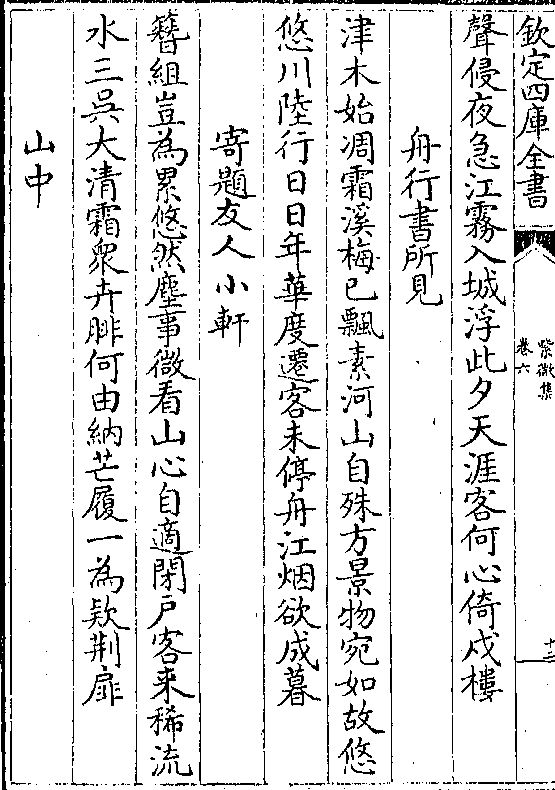 欽定四庫全書
紫微集
卷六
十三
聲侵夜急江霧入城浮此夕天涯客何心倚戍樓
舟行書所見
津木始凋霜溪梅已飄素河山自殊方景物宛如故悠
悠川陸行日日年華度遷客未停舟江烟欲成暮
寄題友人小軒
簪組豈為累悠然塵事微看山心自適閉戶客来稀流
水三吳大清霜衆卉腓何由納芒履一為欵荆扉
山中